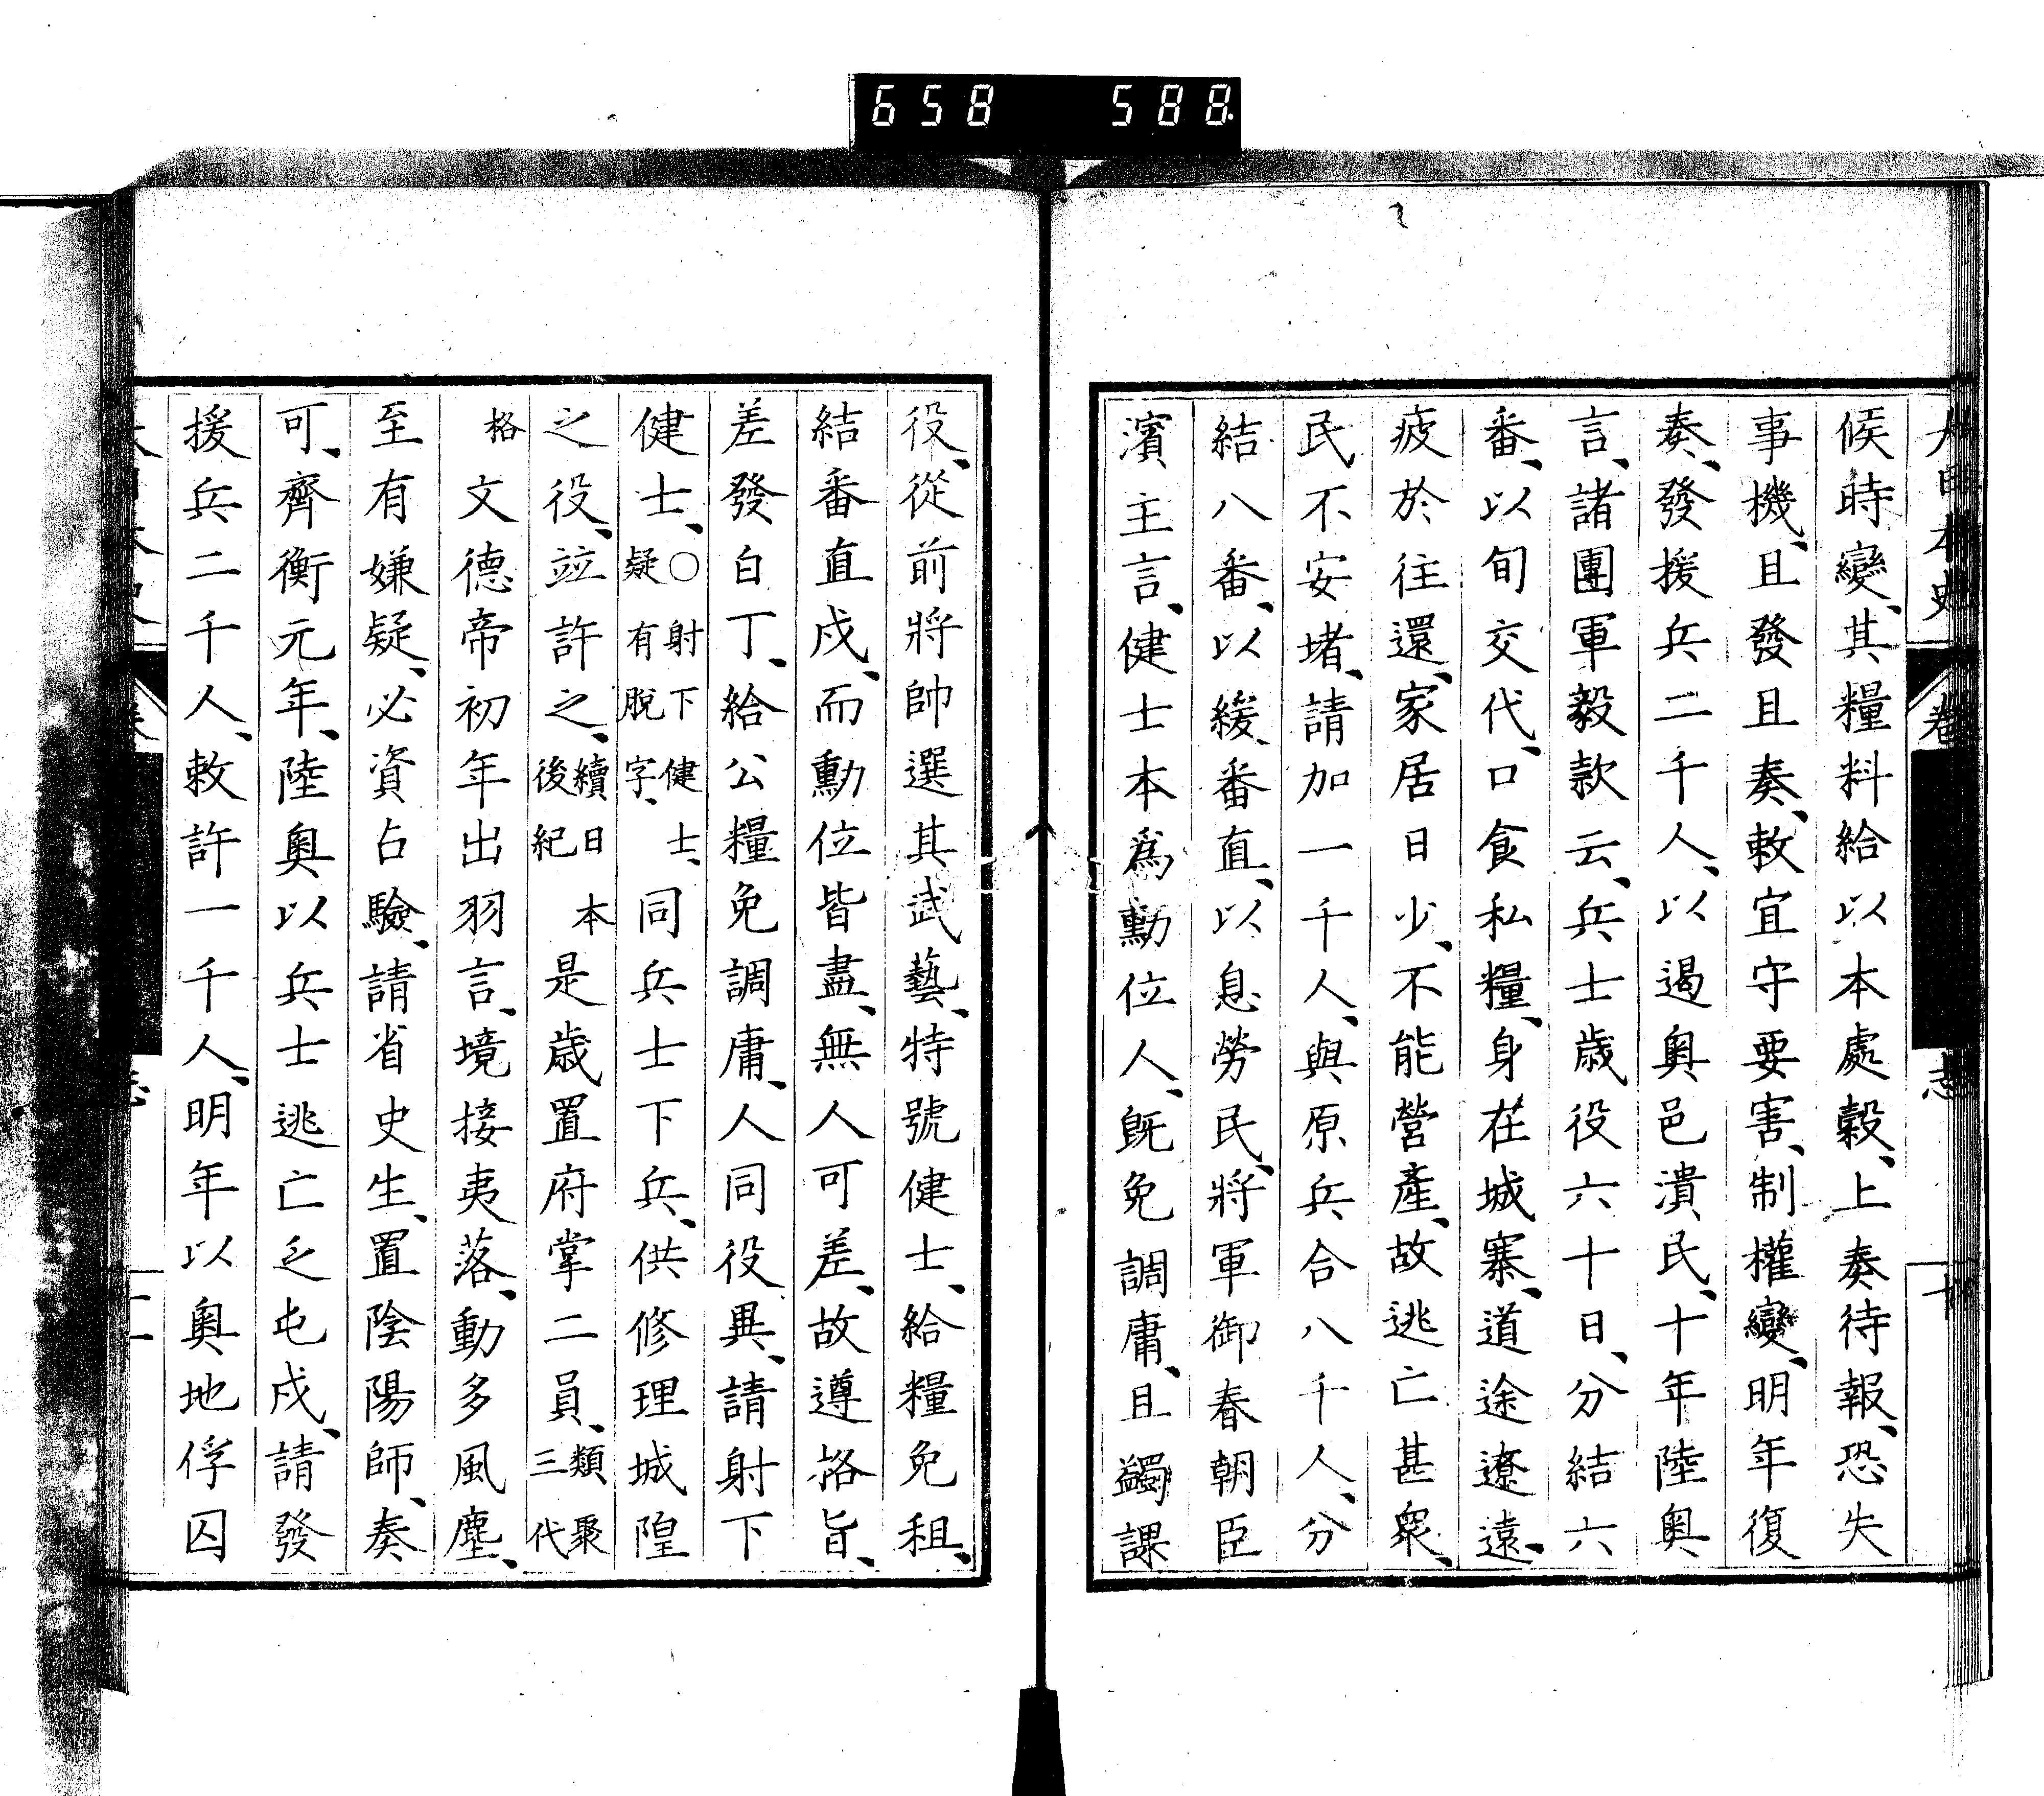 658 588
候時變、其糧料給以本處穀、上奏待報、恐失
事機、且發且奏、敕宜守要害、制權變、明年復
奏、發援兵二千人、以遏奥邑潰民、十年陸奥
言、諸團軍毅款云、兵士歲役六十日、分結六
番、以旬交代、口食私糧、身在城寨、道途遼遠、
疲於往還、家居日少、不能營產、故逃亡甚衆、
民不安堵、請加一千人、與原兵合八千人、分
結八番、以緩番直、以息勞民、將軍御春朝臣
濱主言、健士本爲勳位人、既免調庸、且蠲課
役、從前將帥選其武藝、特號健士、給糧免租、
結番直戍、而勳位皆盡、無人可差、故遵格旨、
差發白丁、給公糧免調庸、人同役異、請射下
健士、○射下健士、疑有脫字、同兵士下兵、供修理城隍
之役、竝許之、續日本後紀是歲置府掌二員、類聚三代
格文德帝初年出羽言、境接夷落、動多風塵、
至有嫌疑、必資占驗、請省史生、置陰陽師、奏
可、齊衡元年、陸奥以兵士逃亡乏屯戍、請發
援兵二千人、敕許一千人、明年以奥地俘囚